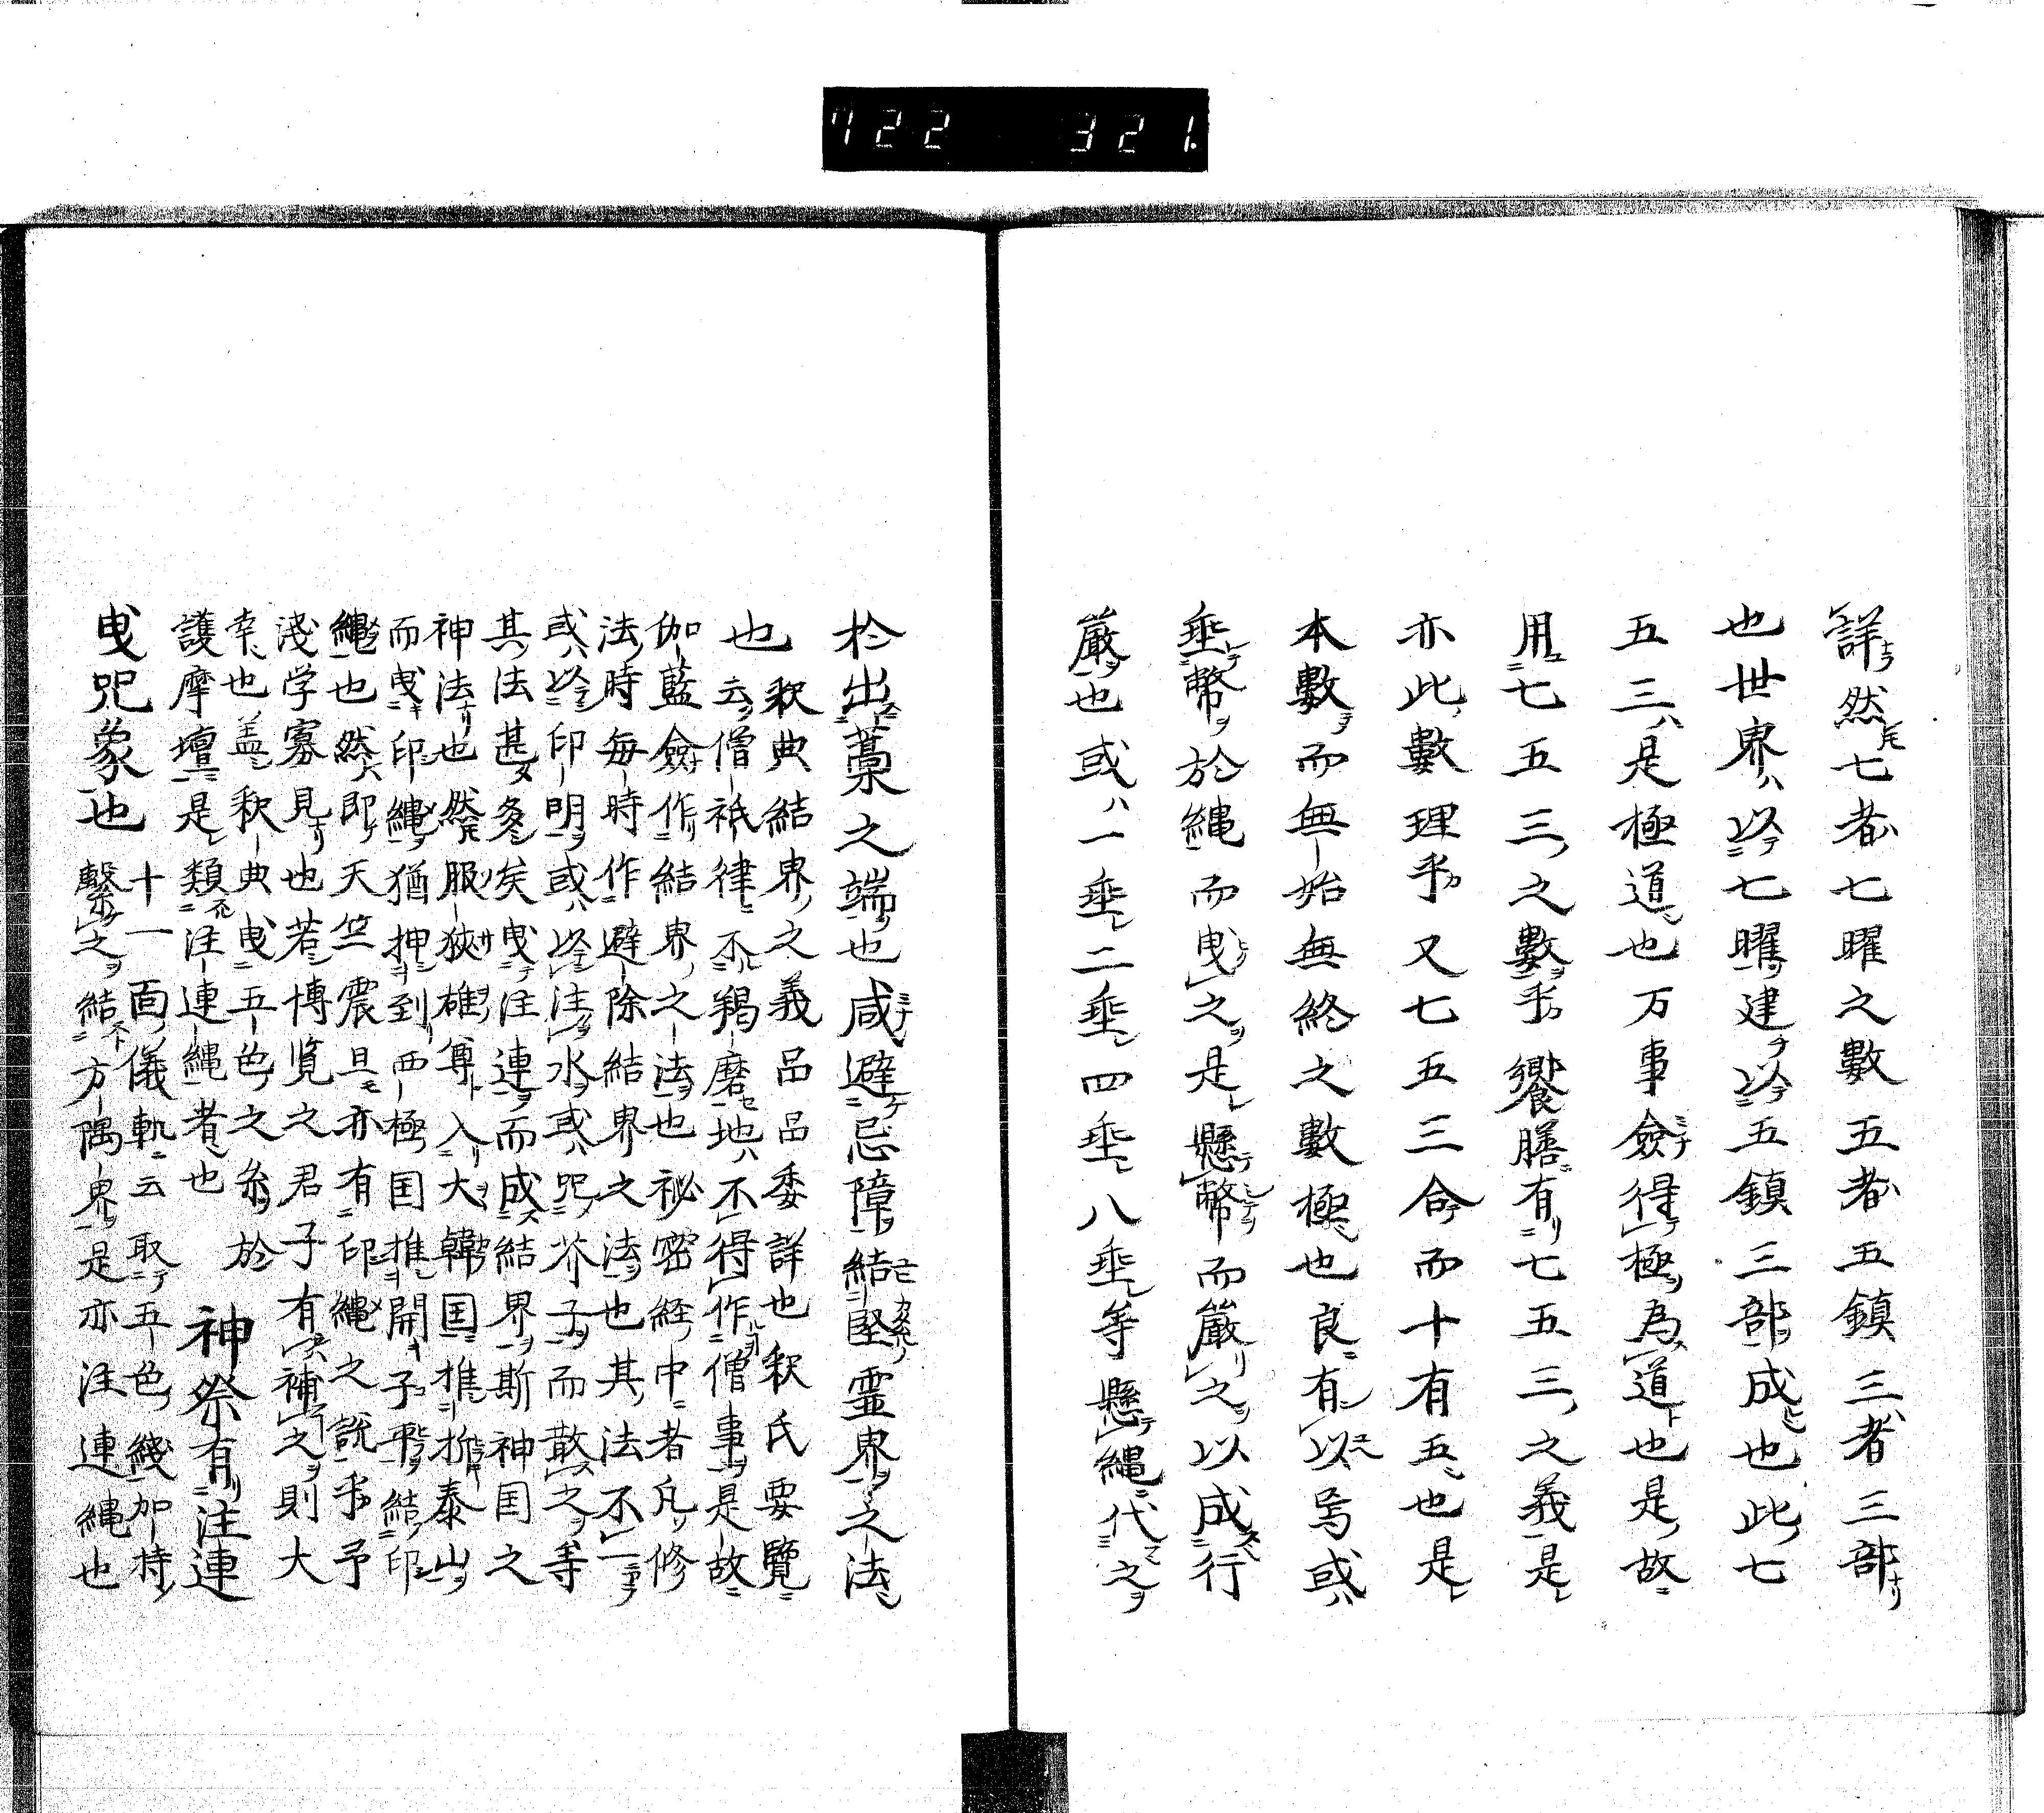 722 321.
詳然七者七曜之數五者五鎮三者三部
也世界以七曜建以五鎮三部成也此七
五三是極道也万事僉得極為道也是故
用七五三之數乎饗膳有七五三之義是
亦此數理乎又七五三合而十有五也是
本數而無始無終之數極也良有以焉或
垂幣於縄而曳之是懸幣而厳之以成行
厳也或一垂二垂四垂八垂等懸縄代之
於出藁之端也咸避忌障結堅霊界之法
也釈典結界之義品品委詳也釈氏要覽
云僧祇律不羯磨地不得作僧事是故
伽藍僉作結界之法也祕密経中者凡修
法時毎時作避除結界之法也其法不一
或以印明或以洼水或咒芥子而散之等
其法甚多矣曳注連而成結界斯神国之
神法也然服狭雄尊入大韓国推泰山
而曳印縄猶押到西極国推開子平結印
縄也然即天竺震旦亦有印縄之説乎予
淺学寡見也若博覧之君子有補之則大
幸也盖釈典曳五色之糸於
護摩壇是類注連縄者也
神祭有注連
曳咒象也
十一面儀軌云取五色綫加持
繋之結方隅界是亦注連縄也